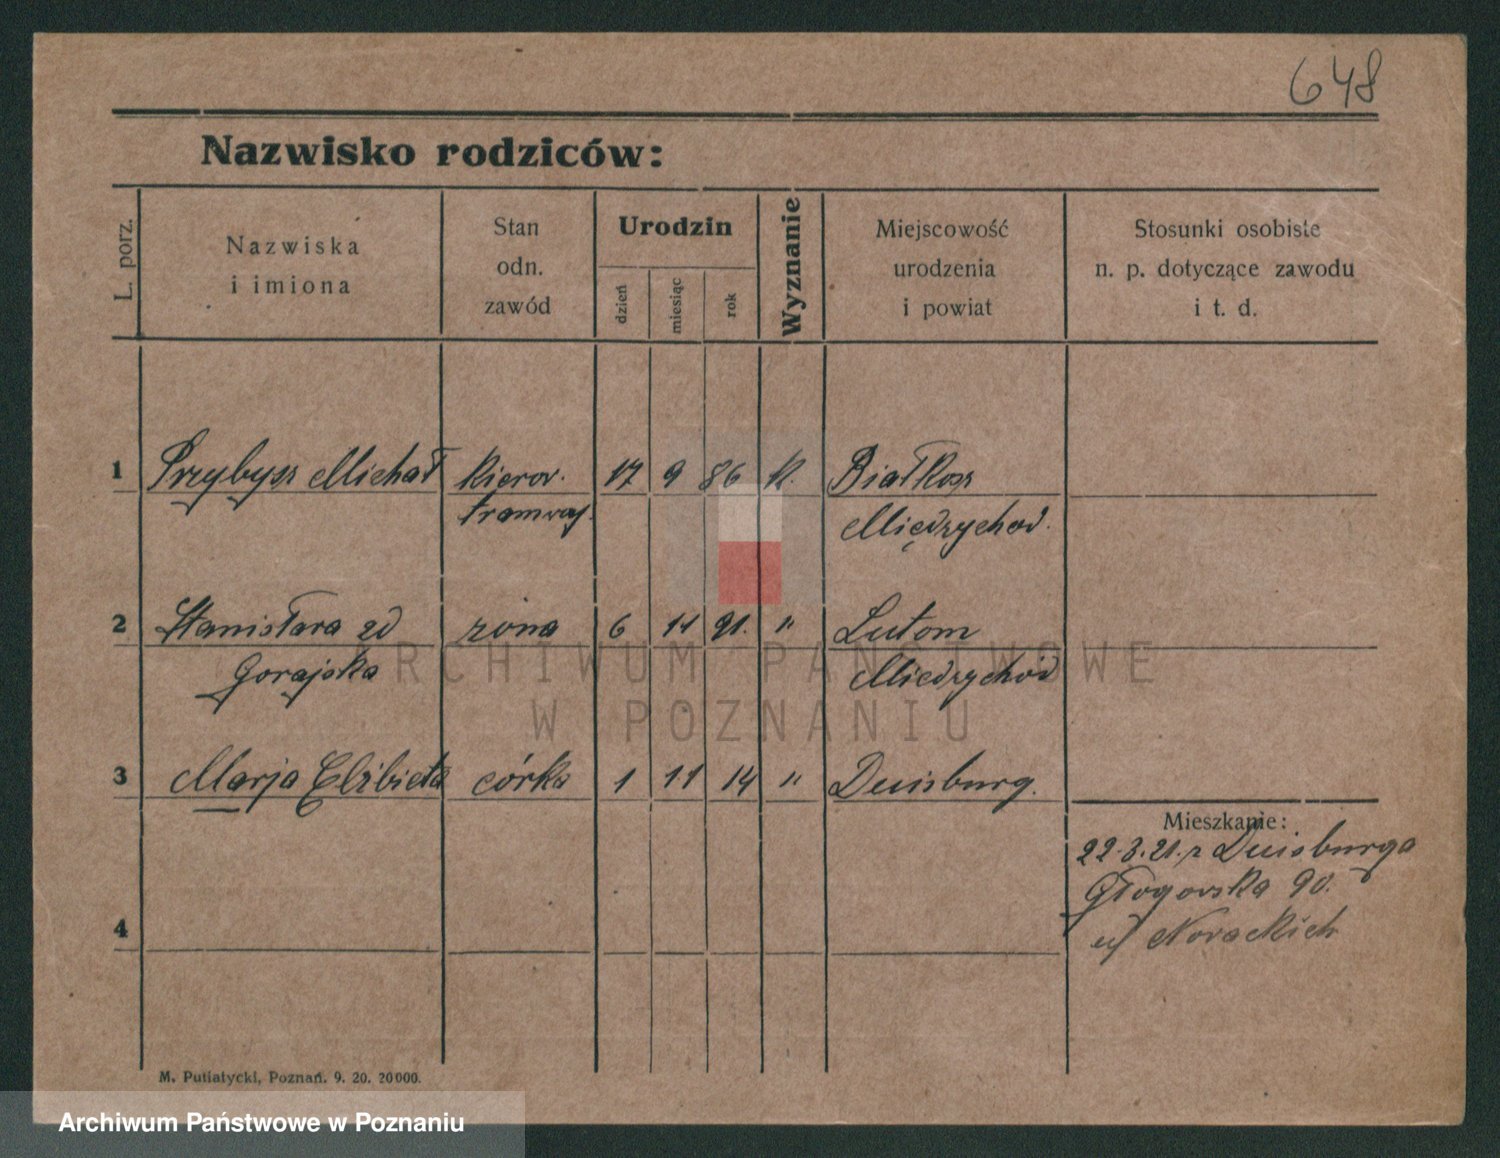 648
Nazwisko rodziców:
L. porz.
Nazwiska
i imiona
Stan
odn.
zawód
Urodzin
dzień
miesiąc
rok
Wyznanie
Miejscowość
urodzenia
i powiat
Stosunki osobiste
n. p. dotyczące zawodu
i t. d.
1 Przybysz Michał kierow. 17 9 86 k. Białkosz
tramwaj. Międzychod.
2 Stanisława zd żona 6 11 91. " Lutom
Gorajska Miedzychód
3 Marja Elżbieta córka 1 11 14 " Duisburg.
Mieszkanie:
22.3.21. z Duisburga
Głogowska 90.
u/ Nowackich
4
M. Putiatycki, Poznań. 9. 20. 20000.
ARCHIWUM PAŃSTWOWE
W POZNANIU
Archiwum Państwowe w Poznaniu